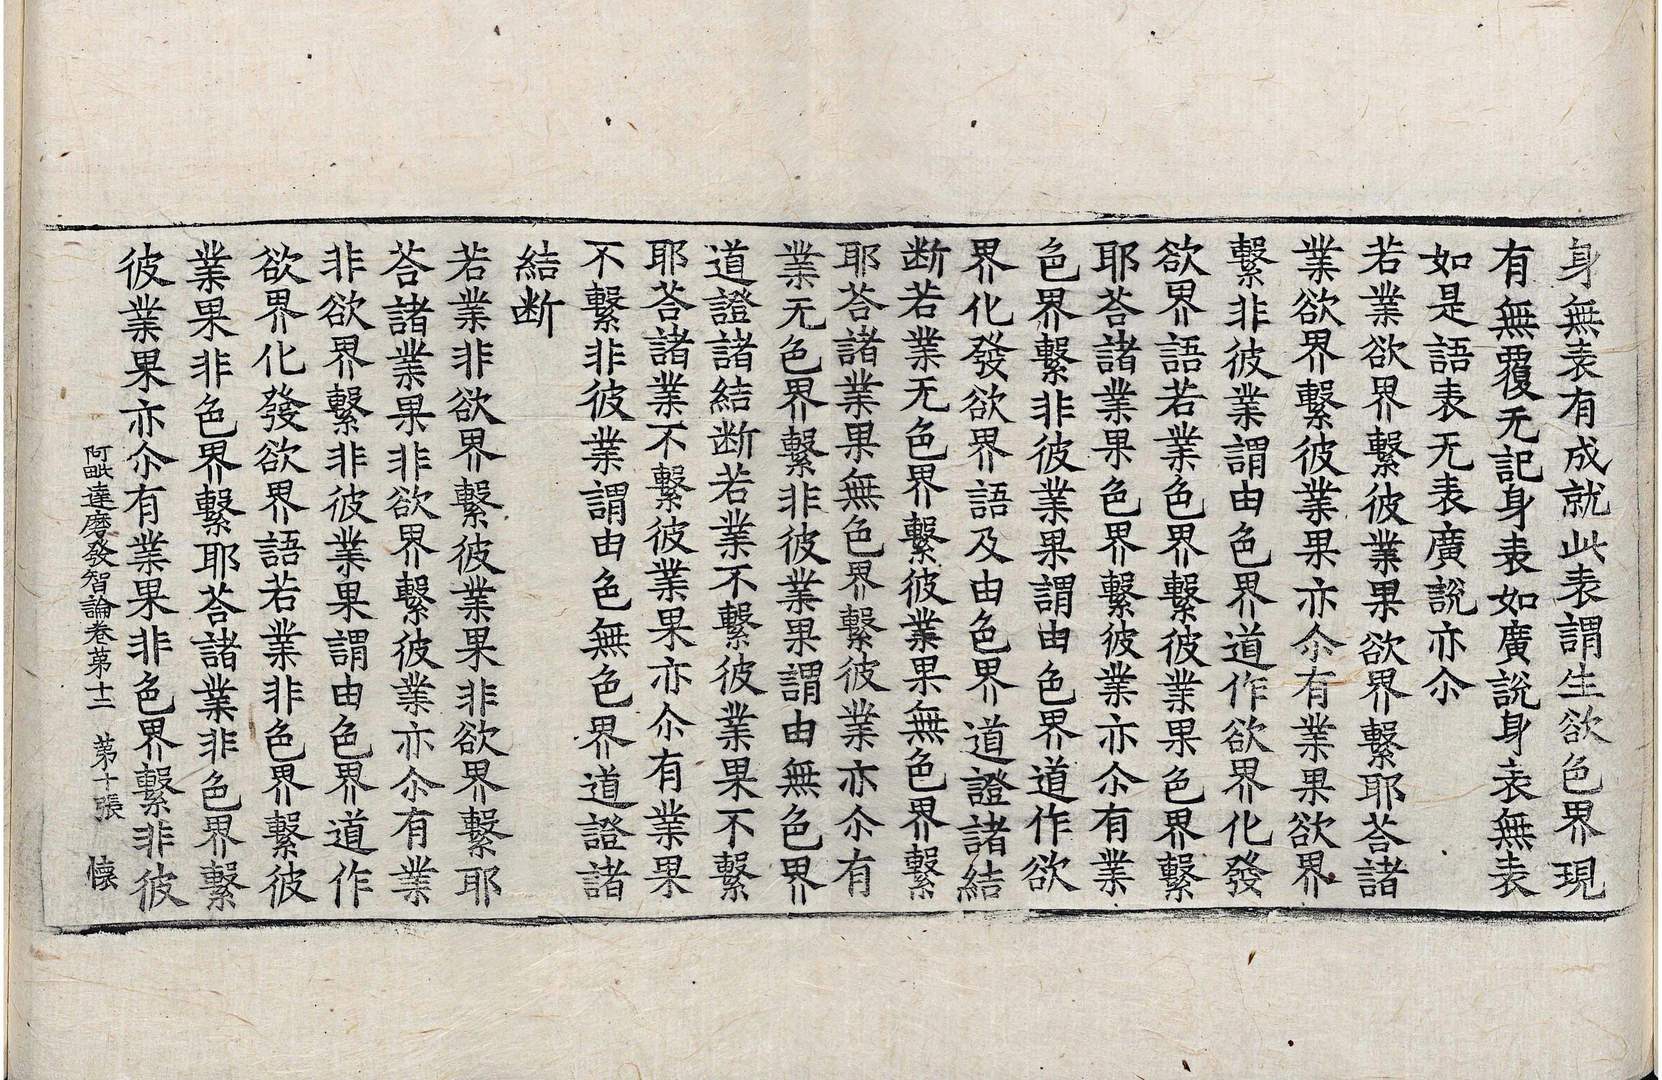 身無表有成就此表謂生欲色界現
有無覆无記身表如廣說身表無表
如是語表无表廣說亦尒
若業欲界繫彼業果欲界繫耶荅諸
業欲界繫彼業果亦尒有業果欲界
繫非彼業謂由色界道作欲界化發
欲界語若業色界繫彼業果色界繫
耶荅諸業果色界繫彼業亦尒有業
色界繫非彼業果謂由色界道作欲
界化發欲界語及由色界道證諸結
断若業无色界繫彼業果無色界繫
耶荅諸業果無色界繫彼業亦尒有
業无色界繫非彼業果謂由無色界
道證諸結断若業不繫彼業果不繫
耶荅諸業不繫彼業果亦尒有業果
不繫非彼業謂由色無色界道證諸
結断
若業非欲界繫彼業果非欲界繫耶
荅諸業果非欲界繫彼業亦尒有業
非欲界繫非彼業果謂由色界道作
欲界化發欲界語若業非色界繫彼
業果非色界繫耶荅諸業非色界繫
彼業果亦尒有業果非色界繫非彼
阿毗達磨發智論卷第十二 第十張 懷